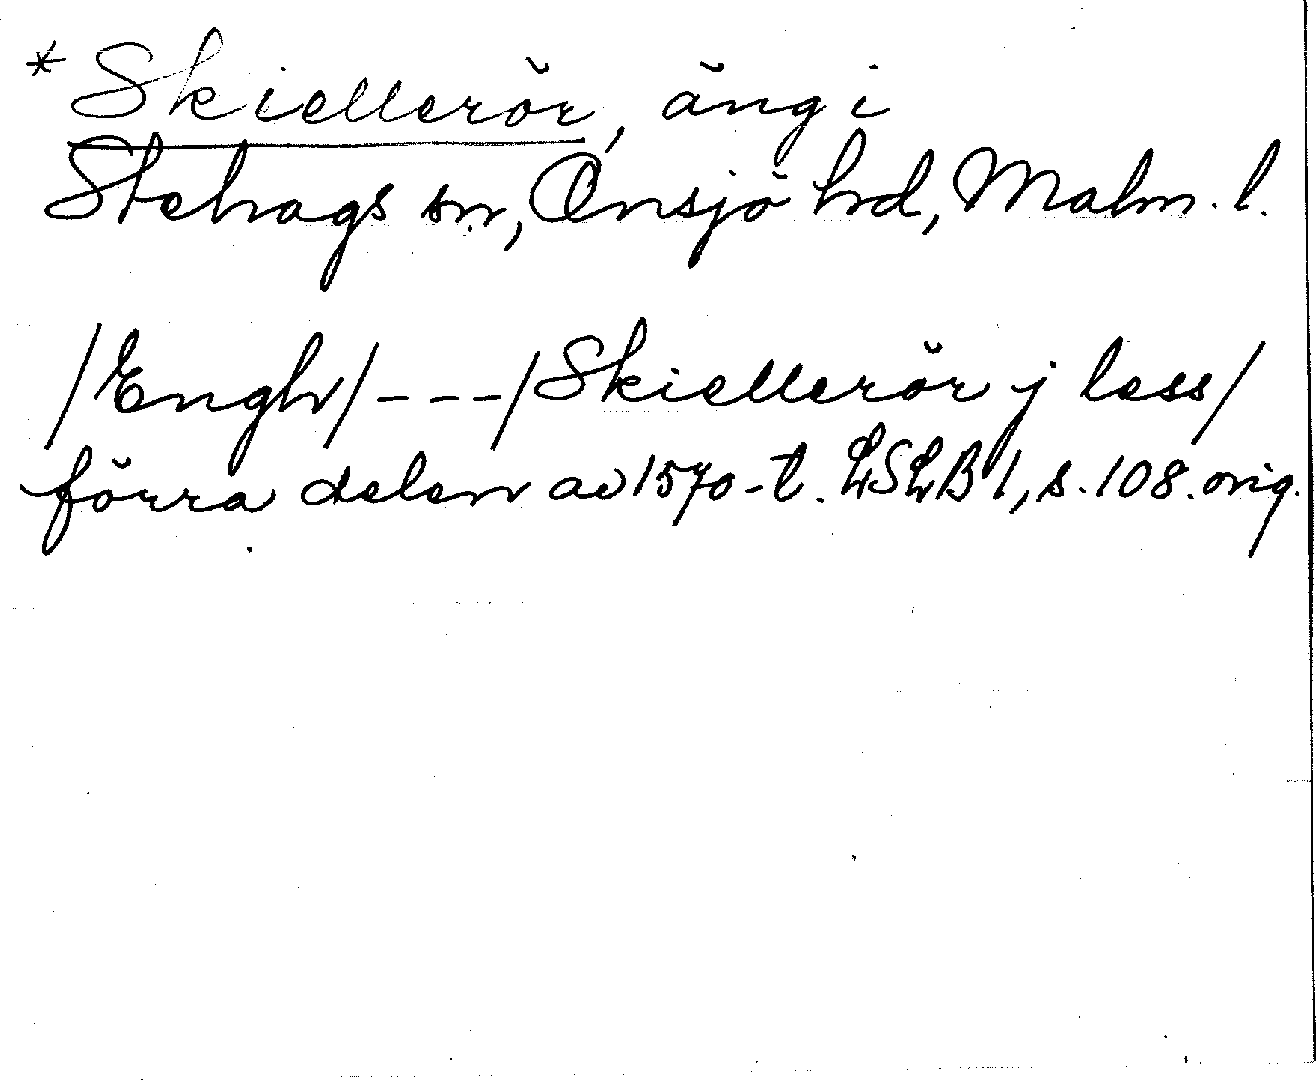 * Skiellerör, äng i
Stehags sn, Onsjö hd, Malm. l.
/Engh/ - - - /Skiellerör j less/
förra delen av 1570-t. LSLB 1, s. 108. orig.